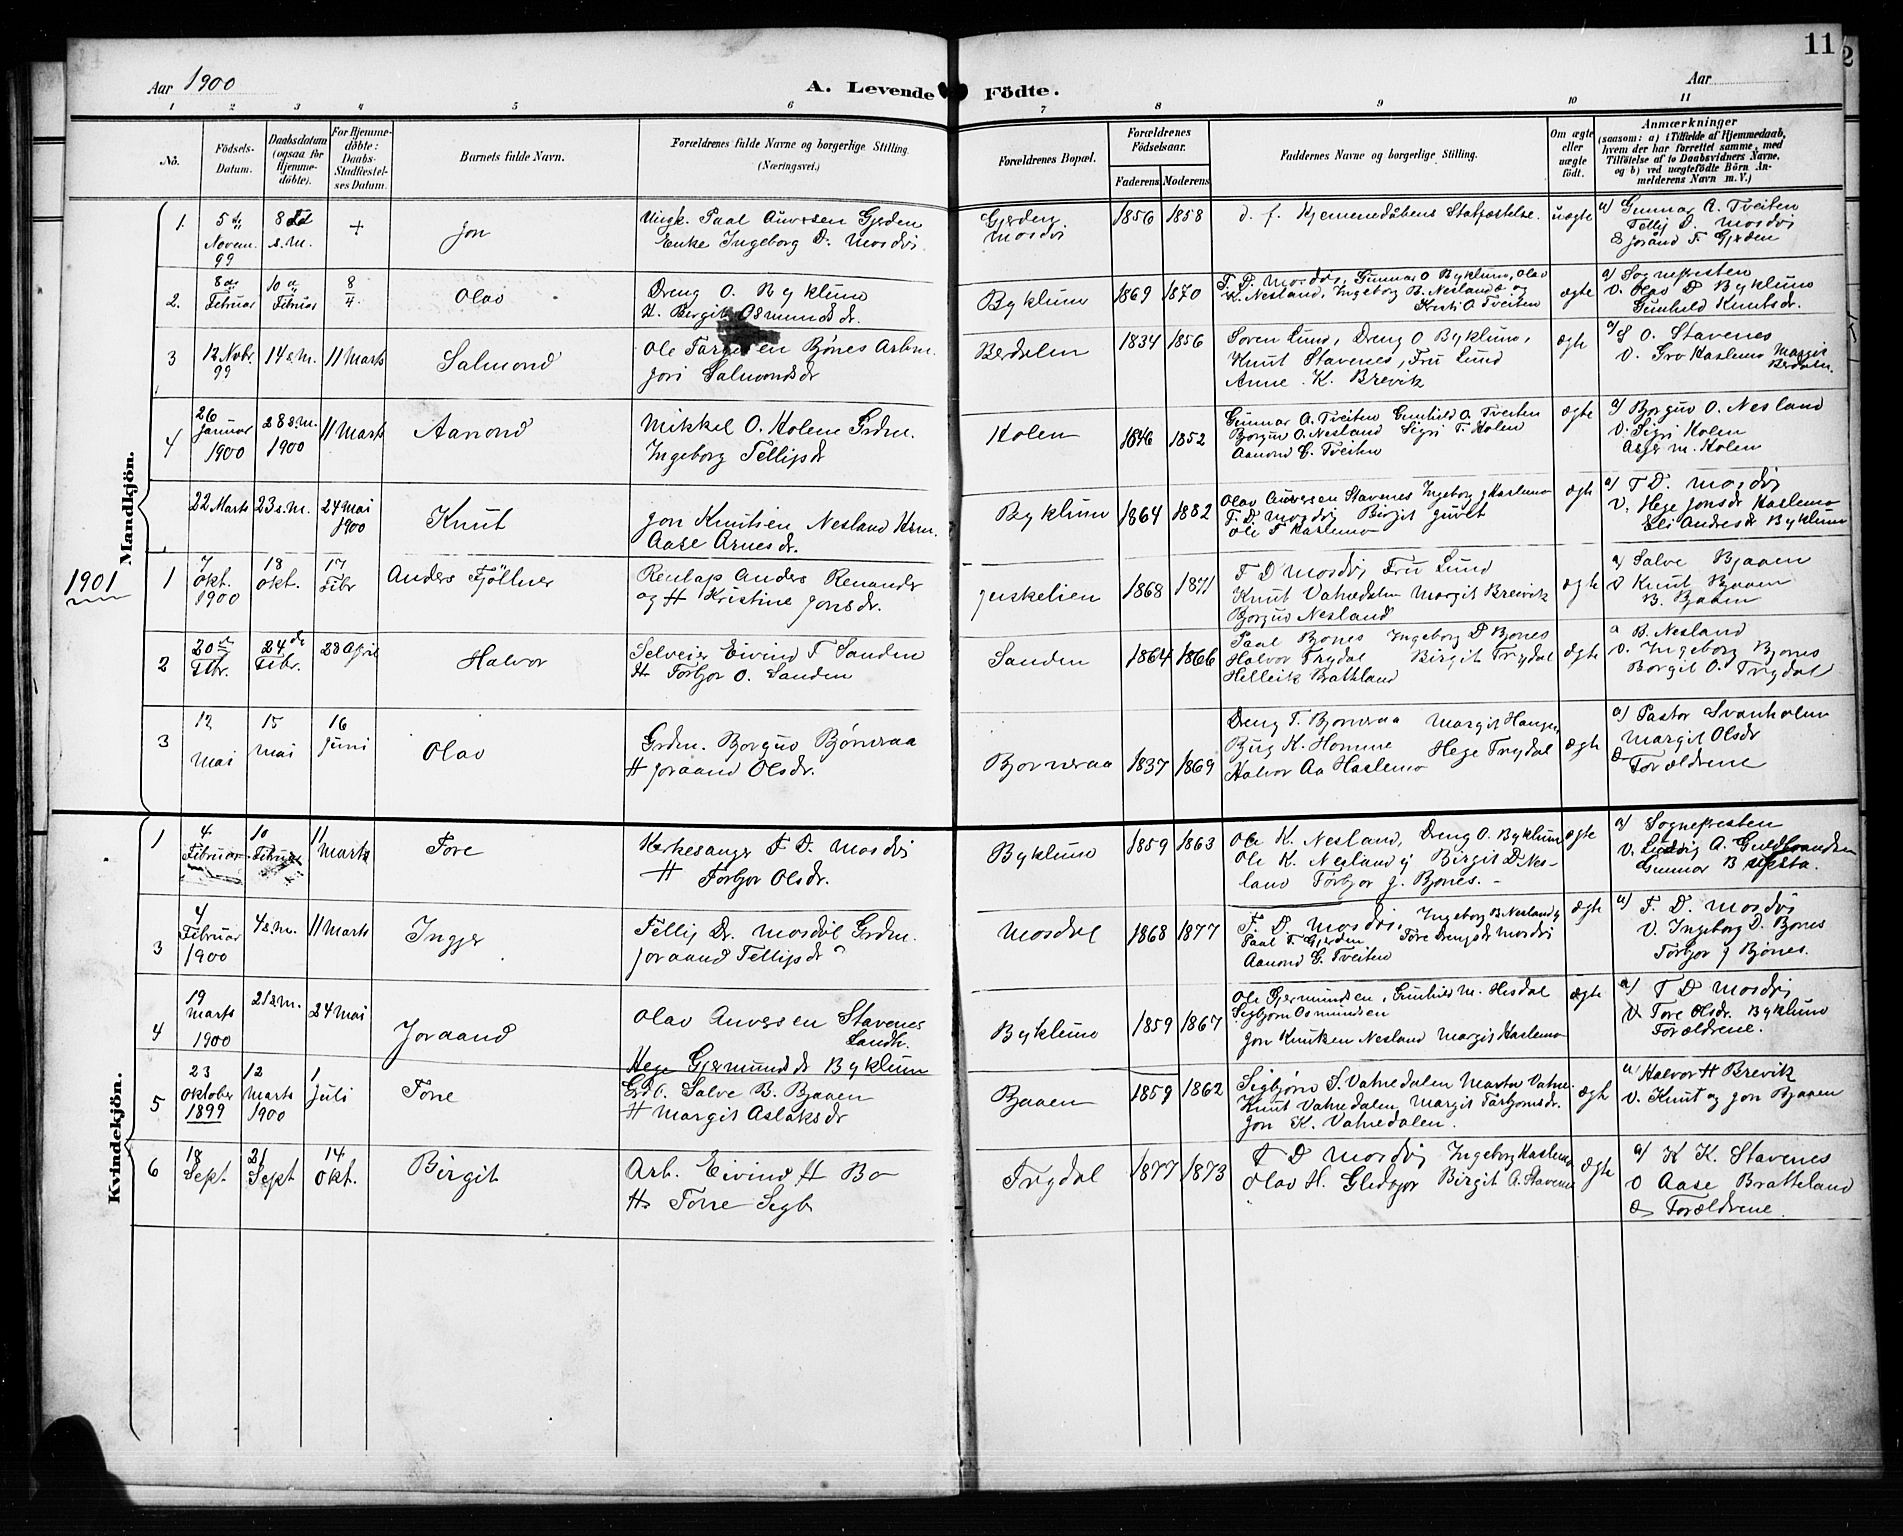 11
Aar 1900
A. Levende Födte.
Aar
1 2 3 4 5 6 7 8 9 10 11
No.
Födsels-Datum.
Daabsdatum (ogsaa for Hjemme-döbte).
For Hjemme-döbte: Daabs-Stadfæstel-ses Datum.
Barnets fulde Navn.
Forældrenes fulde Navne og borgerlige Stilling. (Næringsvei.)
Forældrenes Bopæl.
Forældrenes Födselsaar.
Faderens Moderens
Faddernes Navne og borgerlige Stilling.
Om ægte eller uægte födt.
Anmærkninger
(saasom: a) i Tilfælde af Hjemmedaab,
hvem der har forrettet samme, med
Tilföielse af to Daabsvidners Navne,
og b) ved uægtefödte Börn An-
melderens Navn m. V.)
Mandkjön.
1. 5 de Novem 99 8 s.m. + Jon
Ungk. Paal Auversen Gjerden
Enke Ingeborg D. Mosdøi
Gjerden Mosdøi 1856 1858
d. f. Hjemmedåbens Statfæstelse. uægte
a) Gunnar A. Tveiten
Tellij D. Mosdøi
& Joraand T. Gjerden
2. 8 de Februar 10 de Februar 8/4 Olav
Dreng O. Byklum
H. Bergit Osmunds dr.
Byklum 1869 1870
T. D. Mosdøi, Gunnar O Byklum, Olav
K. Nesland, Ingeborg B. Nesland og
O Tveiten
ægte
a) Sognepresten
v. Olav D Byklum
Gunhild Knutsdr.
3 12 Novbr 99 14 s.m. 11 Marts Salmond
Ole Bjønes Arbm.
Jori Salmondsdr
Berdalen 1834 1856
Søren Lund, Dreng O Byklum,
Knut Stavenes, Fru Lund
Anne K. Brevik
ægte
a) S O. Stavenes
v. Gro Haslemo Margit Berdalen.
4 26 Januar 1900 28 s.m. 1900 11 Marts Aanond
Mikkel O. Holene Grdm.
Ingeborg Tellijsdr
Holen 1846 1852
Gunnar A. Tveiten Gunhild O. Tveiten
Borguv O. Nesland Sigri T. Holen
Aanond G. Tveiten
ægte
a) Borguv O. Nesland
v. Sigri Holen
Asger M. Holen
22 Marts 23 s.m. 24 Mai 1900 Knut
Jon Knutsen Nesland Hsm.
Aase Arnesdr.
Byklum 1864 1882
Olav Auversen Stavenes Ingeborg J Haslemo
T. D. Mosdøi Birgit Juvet
Ole T Haslemo
ægte
a) T D. Mosdøi
v. Hege Jonsdr Haslemo
Eli Andresdr Byklum
1901
1 7 Okt. 1900 18 Okt. 17 Febr Anders Fjöllner
Renlap Anders Renander
og H Kristine Jonsdr.
Juskelien 1868 1871
T D Mosdøi Fru Lund
Knut Vatnedalen Margit Breivik
Borguv Nesland
ægte
a) Salve Bjaaen
v Knut Bjaaen
B. Bjaaen
2 20 de Febr. 24 de Febr. 28 April Halvor
Selveier Eivind T Sanden
H Torbjor O. Sanden
Sanden 1864 1866
Paal Bjones Ingeborg D Bjones
Halvor Trydal Birgit Trydal
Helleik Brattland
ægte
a B. Nesland
v. Ingeborg Bjones
Borgil O. Trydal
3 12 Mai 15 Mai 16 Juni Olav
Grdm. Borguv Bjørnraa
H Joraand Olsdr.
Bjornraa 1837 1869
Dreng T. Bjornraa Margit
K. Homme Hege Trydal
Halvor Aa Haslemo
ægte
a) Pastor Svanholm
Margit Olsdr
& Forældrene
Kvindekjön.
1 4 Februar 10 Februar 11 Marts Tore
Kirkesanger T D. Mosdøi
H Torbjor Olsdr.
Byklum 1859 1863
Ole K. Nesland, Dreng O. Byklum
Ole K. Nesland y Birgit D Nes-
land Torbjor J. Bjones. -
ægte
a) Sognepresten
v. Ludvig A. Guldbrandsen
Gunnar B
3 4 Februar 1900 4 s.m. 11 Marts Ingjer
Tellij Dr. Mosdøl Grdm.
Joraand Tellijsdr
Mosdøl 1868 1877
T. D. Mosdøi, Ingeborg B. Nesland y
Paal T. Gjerden Tore Drengsdr Mosdøi
Aanond G. Tveiten
ægte
a) T. D. Mosdøi
v. Ingeborg D. Bjones
Torbjor J Bjones.
4 19 Marts 1900 21 s.m. 24 Mai Joraand
Olav Auversen Stavenes
Landh.
Hege Gjermundsdr Byklum
Byklum 1859 1867
Ole Gjermundsen, Gunhild M. Hisdal
Sigbjørn Osmundsen
Jon Knutsen Nesland Margit Haslemo
ægte
a) T D Mosdøi
v Tore Olsdr. Byklum
Forældrene.
5 23 Oktober 1899 12 Marts 1900 1 Juli Torre
Grd. Salve B. Bjaaen
H Margit Aslaksdr
Bjaaen 1859 1862
Sigbjørn S. Vatnedalen Marta Vatne.
Knut Vatnedalen Margit Torbjornsdr.
Jon K. Vatnedalen.
ægte
a) Halvor H Brevik
v. Knut og Jon Bjaaen
6 18 Sept 21 Sept 14 Okt. Birgit
Arb. Eivind H Bo
H Torre Sigb
Trydal 1877 1873
T D Mosdøi Ingeborg Haslemo
Olav H. Birgit A. Stavenes
ægte
a) K K. Stavenes
v Aase Bratteland
& Forældrene.